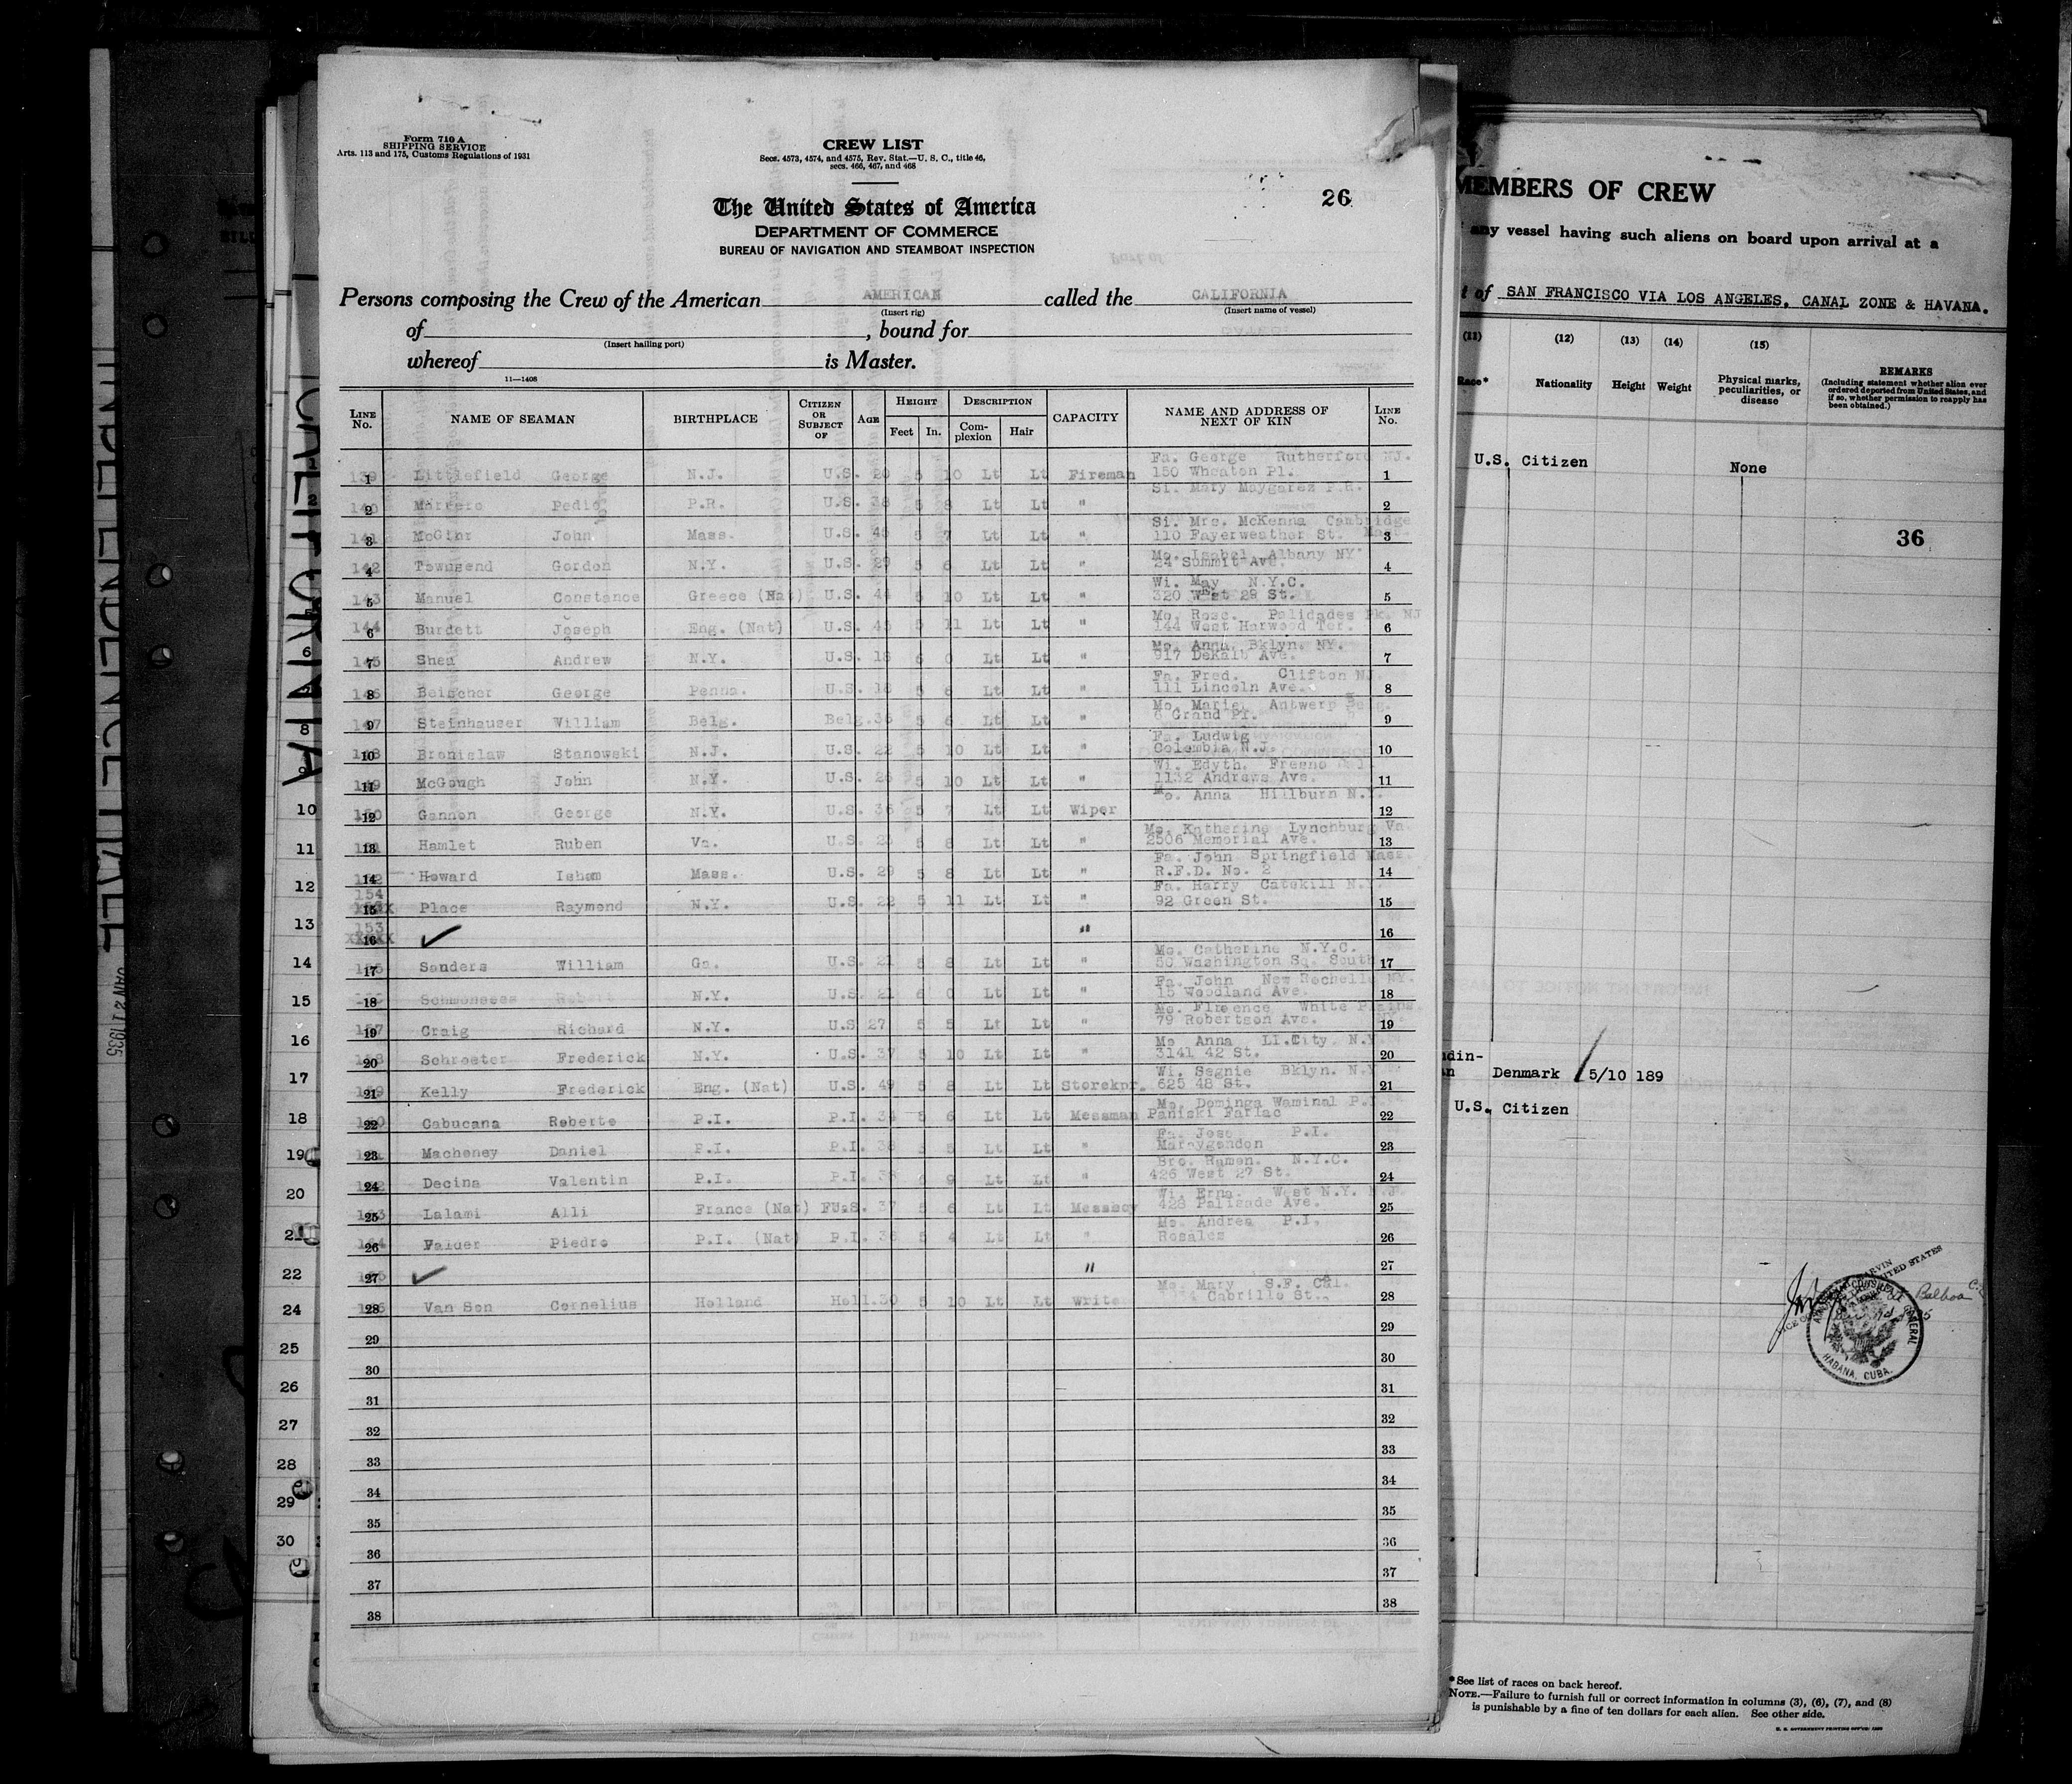 Form 710 A
SHIPPING SERVICE
Arts. 113 and 175, Customs Regulations of 1931
CREW LIST
Secs. 4573, 4574, and 4575, Rev. Stat.—U. S. C., title 46,
secs. 466, 467, and 468
26
The United States of America
DEPARTMENT OF COMMERCE
BUREAU OF NAVIGATION AND STEAMBOAT INSPECTION
Persons composing the Crew of the American AMERICAN called the CALIFORNIA
(Insert rig) (Insert name of vessel)
of , bound for
(Insert hailing port)
whereof is Master.
11—1408
LINE No. NAME OF SEAMAN BIRTHPLACE CITIZEN OR SUBJECT OF AGE HEIGHT Feet In. DESCRIPTION Complexion Hair CAPACITY NAME AND ADDRESS OF NEXT OF KIN LINE No.
Fa. George Rutherford NJ.
1 Littlefield George N.J. U.S. 20 5 10 Lt Lt Fireman 150 Wheaton Pl. 1
Si. Mary Maygarez P.R.
2 Marrero Pedio P.R. U.S. 38 5 8 Lt Lt " 2
Si. Mrs. McKenna Cambridge
3 McGinr John Mass. U.S. 45 5 7 Lt Lt " 110 Fayerweather St. 3
Mo. Isabel Albany NY
4 142 Townsend Gordon N.Y. U.S. 29 5 6 Lt Lt " 24 Summit Ave. 4
Wi. May N.Y.C.
5 143 Manuel Constance Greece (Nat) U.S. 44 5 10 Lt Lt " 320 West 29 St. 5
Mo. Rose. Palidades Pk. NJ
6 144 Burdett Joseph Eng. (Nat) U.S. 45 5 11 Lt Lt " 144 West Harwood Ter. 6
Mo. Anna. Bklyn. NY.
7 145 Shea Andrew N.Y. U.S. 18 6 0 Lt Lt " 917 DeKalb Ave. 7
Fa. Fred. Clifton NJ.
8 146 Beischer George Penna. U.S. 18 5 6 Lt Lt " 111 Lincoln Ave. 8
Mo. Marie. Antwerp Belg.
9 147 Steinhauser William Belg. Belg. 36 5 6 Lt Lt " 6 Grand Pl. 9
Fa. Ludwig
10 148 Bronislaw Stanowski N.J. U.S. 22 5 10 Lt Lt " Colombia N.J. 10
Wi. Edyth. Fresno Cal.
11 149 McGough John N.Y. U.S. 26 5 10 Lt Lt " 1132 Andrews Ave. 11
Mo. Anna Hillburn N.Y.
12 150 Gannon George N.Y. U.S. 36 5 7 Lt Lt Wiper 12
Mo. Katherine Lynchburg Va.
13 Hamlet Ruben Va. U.S. 25 5 8 Lt Lt " 2506 Memorial Ave. 13
Fa. John Springfield Mass.
14 Howard Isham Mass. U.S. 29 5 8 Lt Lt " R.F.D. No. 2 14
Fa. Harry Catskill N.Y.
154
15 Place Raymond N.Y. U.S. 22 5 11 Lt Lt " 92 Green St. 15
153
16 ✓ " 16
Mo. Catherine N.Y.C.
17 Sanders William Ga. U.S. 21 5 8 Lt Lt " 50 Washington Sq. South 17
Fa. John New Rochelle NY.
18 Robert N.Y. U.S. 21 6 0 Lt Lt " 15 Woodland Ave. 18
Mo. Florence White Plains
19 157 Craig Richard N.Y. U.S. 27 5 5 Lt Lt " 79 Robertson Ave. 19
Mo Anna LI.City. N.Y.
20 158 Schroeter Frederick N.Y. U.S. 37 5 10 Lt Lt " 3141 42 St. 20
Wi. Segnie Bklyn. N.Y
21 159 Kelly Frederick Eng. (Nat) U.S. 49 5 8 Lt Lt Storekpr. 625 48 St. 21
Mo. Dominga Waminal P.I.
22 160 Cabucana Roberto P.I. P.I. 34 5 6 Lt Lt Messman Paniski Farlac 22
Fa. Jose P.I.
23 Macheney Daniel P.I. P.I. 38 5 5 Lt Lt " Maraygondon 23
Bro. Ramon. N.Y.C.
24 Decina Valentin P.I. P.I. 38 Lt Lt " 426 West 27 St. 24
Wi. Erna. West N.Y. N.J.
25 163 Lalami Alli France (Nat) U.S. 37 5 6 Lt Lt Messboy 428 Palisade Ave. 25
Mo. Andrea P.I.
26 164 Falder Piedro P.I. (Nat) P.I. 38 5 4 Lt Lt " Rosales 26
27 ✓ " 27
Mo. Mary S.F. Cal.
28 Van Son Cornelius Holland Holl. 30 5 10 Lt Lt Write Cabrillo St. 28
29 29
30 30
31 31
32 32
33 33
34 34
35 35
36 36
37 37
38 38
MEMBERS OF CREW
any vessel having such aliens on board upon arrival at a
of SAN FRANCISCO VIA LOS ANGELES, CANAL ZONE & HAVANA.
(11) (12) (13) (14) (15)
Race* Nationality Height Weight Physical marks, peculiarities, or disease REMARKS
(Including statement whether alien ever ordered deported from United States, and if so, whether permission to reapply has been obtained.)
U.S. Citizen None
36
Denmark 5/10 189
U.S. Citizen
Balboa
HABANA, CUBA.
*See list of races on back hereof.
NOTE.—Failure to furnish full or correct information in columns (3), (6), (7), and (8)
is punishable by a fine of ten dollars for each alien. See other side.
U. S. GOVERNMENT PRINTING OFFICE
CALIFORNIA
INDEPENDENCE HALL
JAN 21 1935
6
8
9
10
11
12
13
14
15
16
17
18
19
20
21
22
24
25
26
27
28
29
30